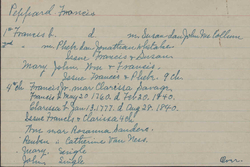 Peppard Francis
1st Francis b. d m. Susan dau John McCollum
2nd m Pheb. dau Jonathan
Issue Francis & Susan
Mary John Wm & Francis.
Issue Frances & Pheb. 9 Ch.
4th Francis Jr. mar Clarissa Savage
Francis b May 27 1760. d Feb. 30. 1840.
Clarissa b Jan 13. 1777. d Aug 28. 1840.
Issue Francis & Clarissa 9ch
Wm mar Roxanna Sanders.
Reuben " Catherine Van Ness.
" Single
John Single
Over.